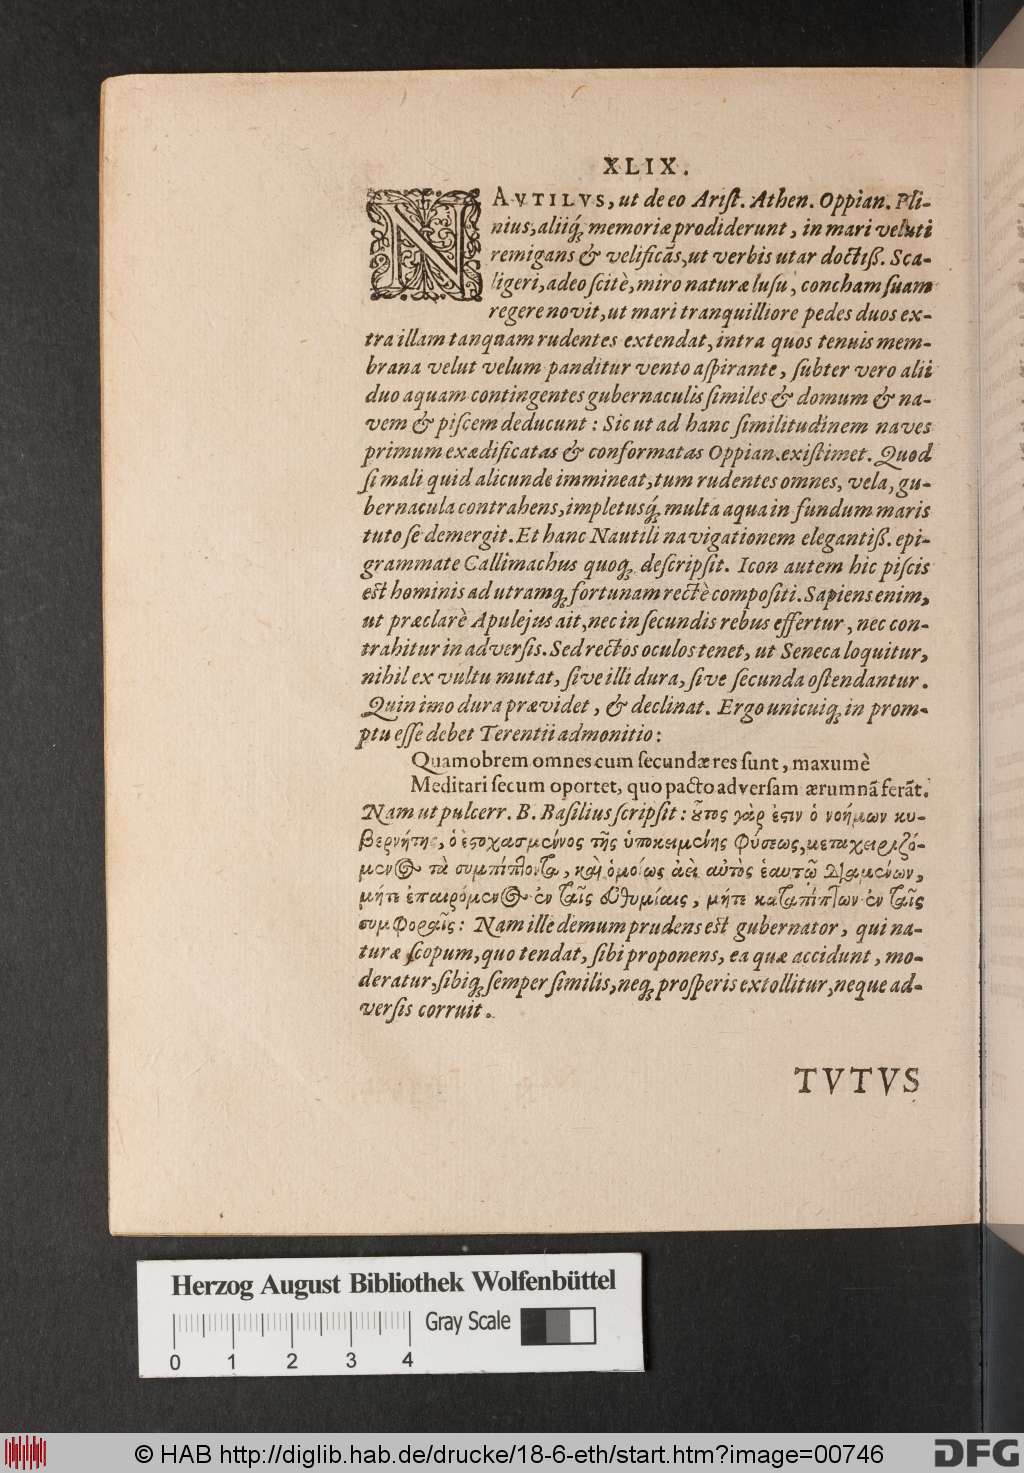 XLIX.
NAVTILVS, ut de eo Arist. Athen. Oppian. Pli-
nius, aliiq́; memoriæ prodiderunt, in mari veluti
remigans & velificãs, ut verbis utar doctiß. Sca-
ligeri, adeo scitè, miro naturæ lusu, concham suam
regere novit, ut mari tranquilliore pedes duos ex-
tra illam tanquam rudentes extendat, intra quos tenuis mem-
brana velut velum panditur vento aspirante, subter vero alii
duo aquam contingentes gubernaculis similes & domum & na-
vem & piscem deducunt: Sic ut ad hanc similitudinem naves
primum exædificatas & conformatas Oppian. existimet. Quod
si mali quid alicunde immineat, tum rudentes omnes, vela, gu-
bernacula contrahens, impletusq́; multa aqua in fundum maris
tuto se demergit. Et hanc Nautili navigationem elegantiß. epi-
grammate Callimachus quoq; descripsit. Icon autem hic piscis
est hominis ad utramq; fortunam rectè compositi. Sapiens enim,
ut præclarè Apulejus ait, nec in secundis rebus effertur, nec con-
trahitur in adversis. Sed rectos oculos tenet, ut Seneca loquitur,
nihil ex vultu mutat, sive illi dura, sive secunda ostendantur.
Quin imo dura prævidet, & declinat. Ergo unicuiq; in prom-
ptu esse debet Terentii admonitio:
Quamobrem omnes cum secundæ res sunt, maxumè
Meditari secum oportet, quo pacto adversam ærumnã ferãt.
Nam ut pulcerr. B. Basilius scripsit: ὗτος γὰρ ἐστιν ὁ νοήμων κυ-
βερνήτης, ὁ ἐστοχασμένος τῆς ὑποκειμένης φύσεως, μεταχειριζό-
μενος τὰ συμπίπτοντα, καὶ ὁμοίως ἀεὶ αὐτὸς ἑαυτῷ διαμένων,
μήτε ἐπαιρόμενος ἐν ταῖς εὐθυμίαις, μήτε καταπίπτων ἐν ταῖς
συμφοραῖς: Nam ille demum prudens est gubernator, qui na-
turæ scopum, quo tendat, sibi proponens, ea quæ accidunt, mo-
deratur, sibiq; semper similis, neq; prosperis extollitur, neque ad-
versis corruit.
TVTVS
Herzog August Bibliothek Wolfenbüttel
Gray Scale
0 1 2 3 4
© HAB http://diglib.hab.de/drucke/18-6-eth/start.htm?image=00746
DFG